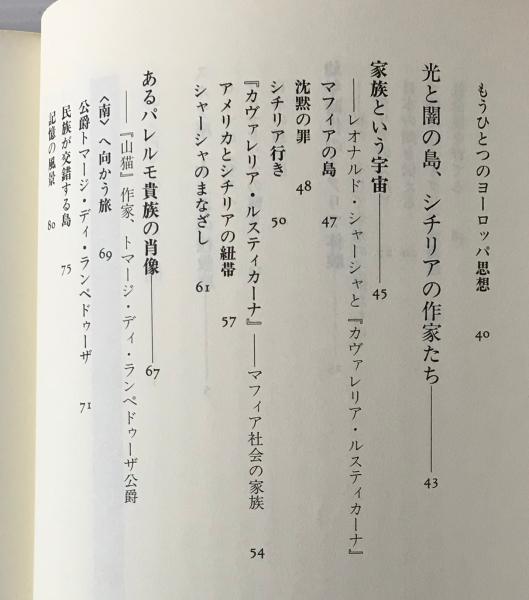 もうひとつのヨーロッパ思想 40
光と闇の島、シチリアの作家たち―――43
家族という宇宙―――45
――レオナルド・シャーシャと『カヴァレリア・ルスティカーナ』
マフィアの島 47
沈黙の罪 48
シチリア行き 50
『カヴァレリア・ルスティカーナ』――マフィア社会の家族 54
アメリカとシチリアの紐帯 57
シャーシャのまなざし 61
あるパレルモ貴族の肖像―――67
――『山猫』作家、トマージ・ディ・ランペドゥーザ公爵
〈南〉へ向かう旅 69
公爵トマージ・ディ・ランペドゥーザ 71
民族が交錯する島 75
記憶の風景 80